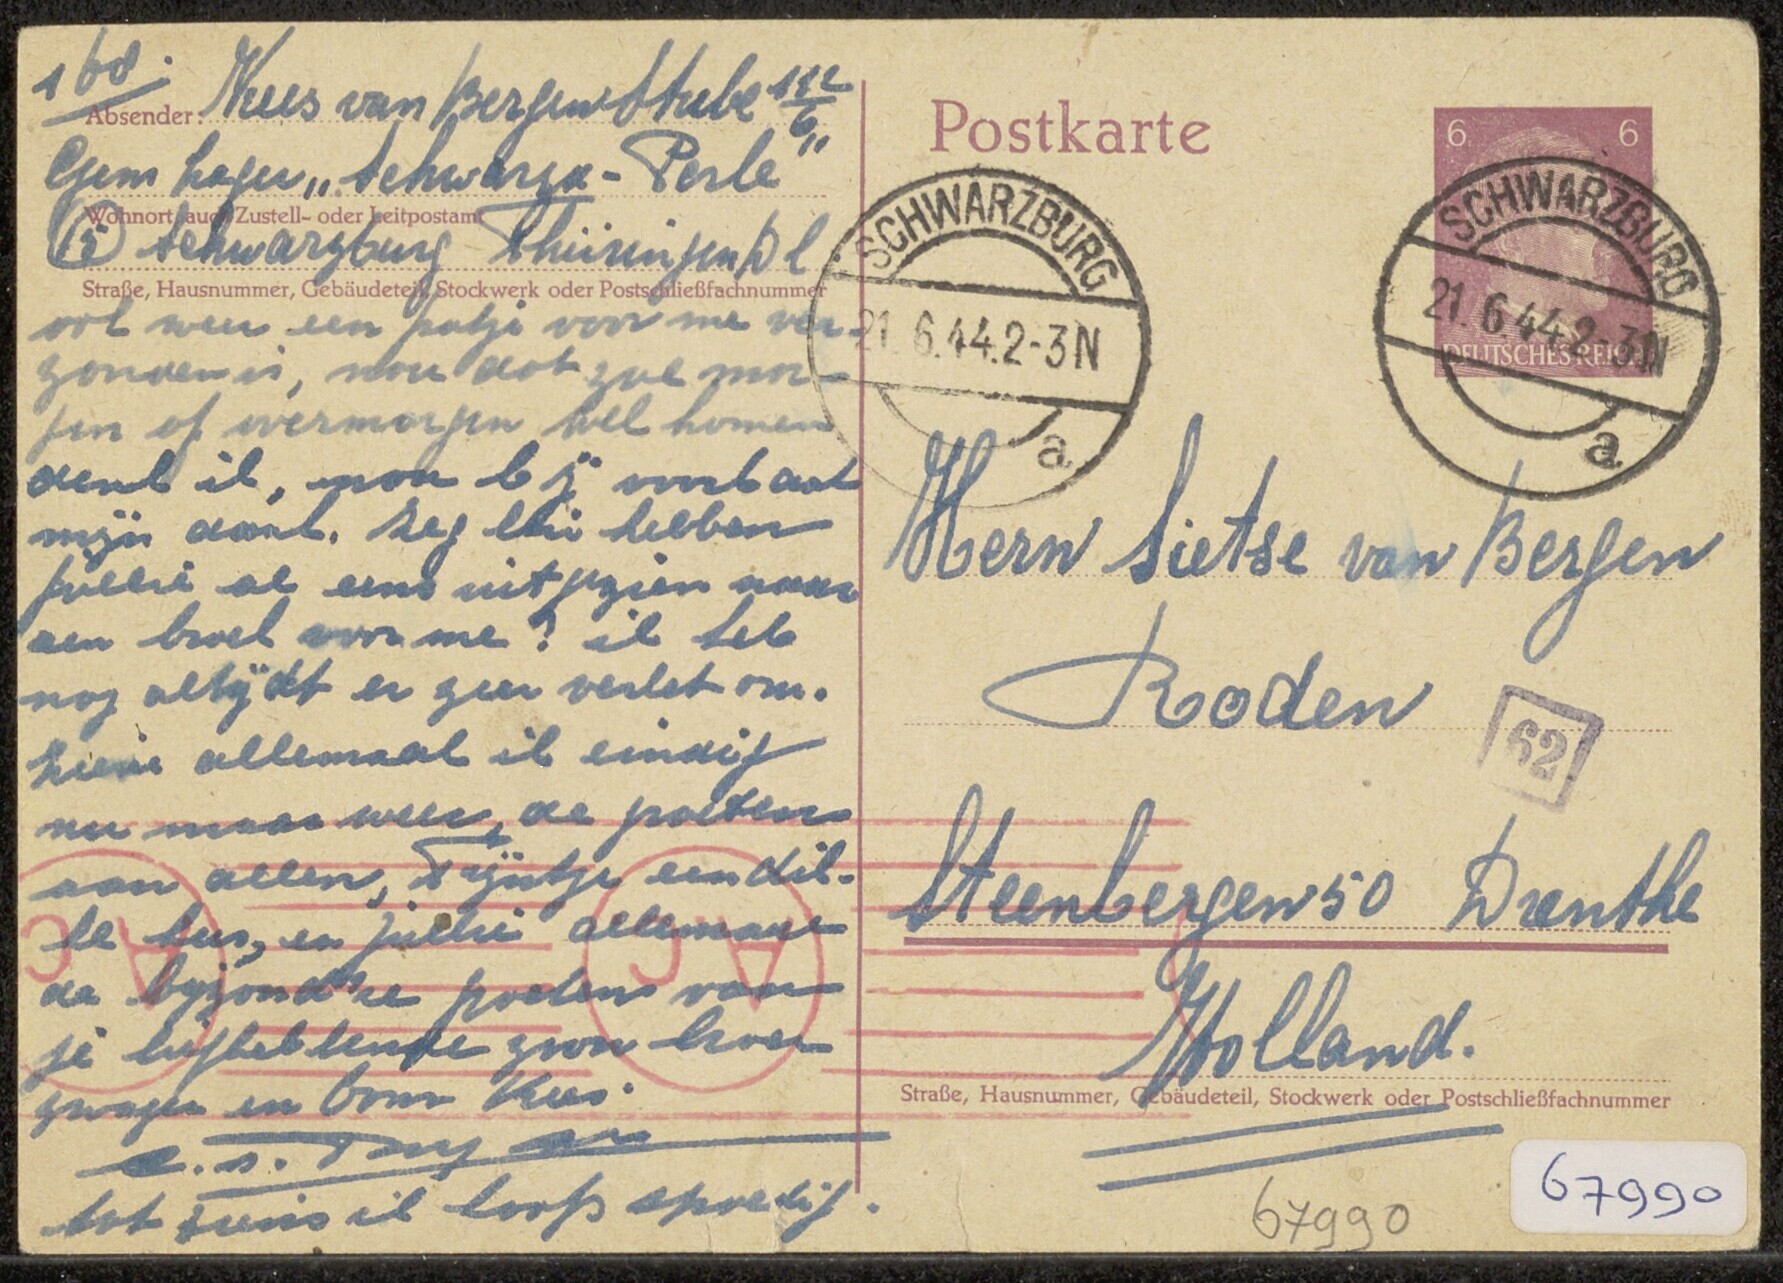 168.
Absender: Kees van Bergen Stube 122/6
Gem Lager „Schwarza-Perle”
Wohnort, auch Zustell- oder Leitpostamt
(15) Schwarzburg Thüringen Dl
Straße, Hausnummer, Gebäudeteil, Stockwerk oder Postschließfachnummer
ook weer een pakje voor me ver-
zonden is, nou dat zal mor-
gen of overmorgen wel komen
denk ik, nou bij voorbaat
mijn dank. Zeg
hebben
jullie al eens uitgezien naar
een broek voor me? ik heb
nog altijdt er zeer verlet om.
allemaal ik eindig
nu maar weer, de groeten
aan allen, Trijntje een dik-
ke kus, en jullie allemaal
de byzond're groeten van
je liefhebbende zoon broer
zwager en oom Kees.
tot ziens ik hoop spoedig.
Postkarte
6 6
DEUTSCHES REICH
SCHWARZBURG
21.6.44.2-3N
a
SCHWARZBURG
21.6.44.2-3N
a
Hern Sietse van Bergen
Roden
62
Steenbergen 50 Drenthe
Holland.
Straße, Hausnummer, Gebäudeteil, Stockwerk oder Postschließfachnummer
A C
A C
67990
67990